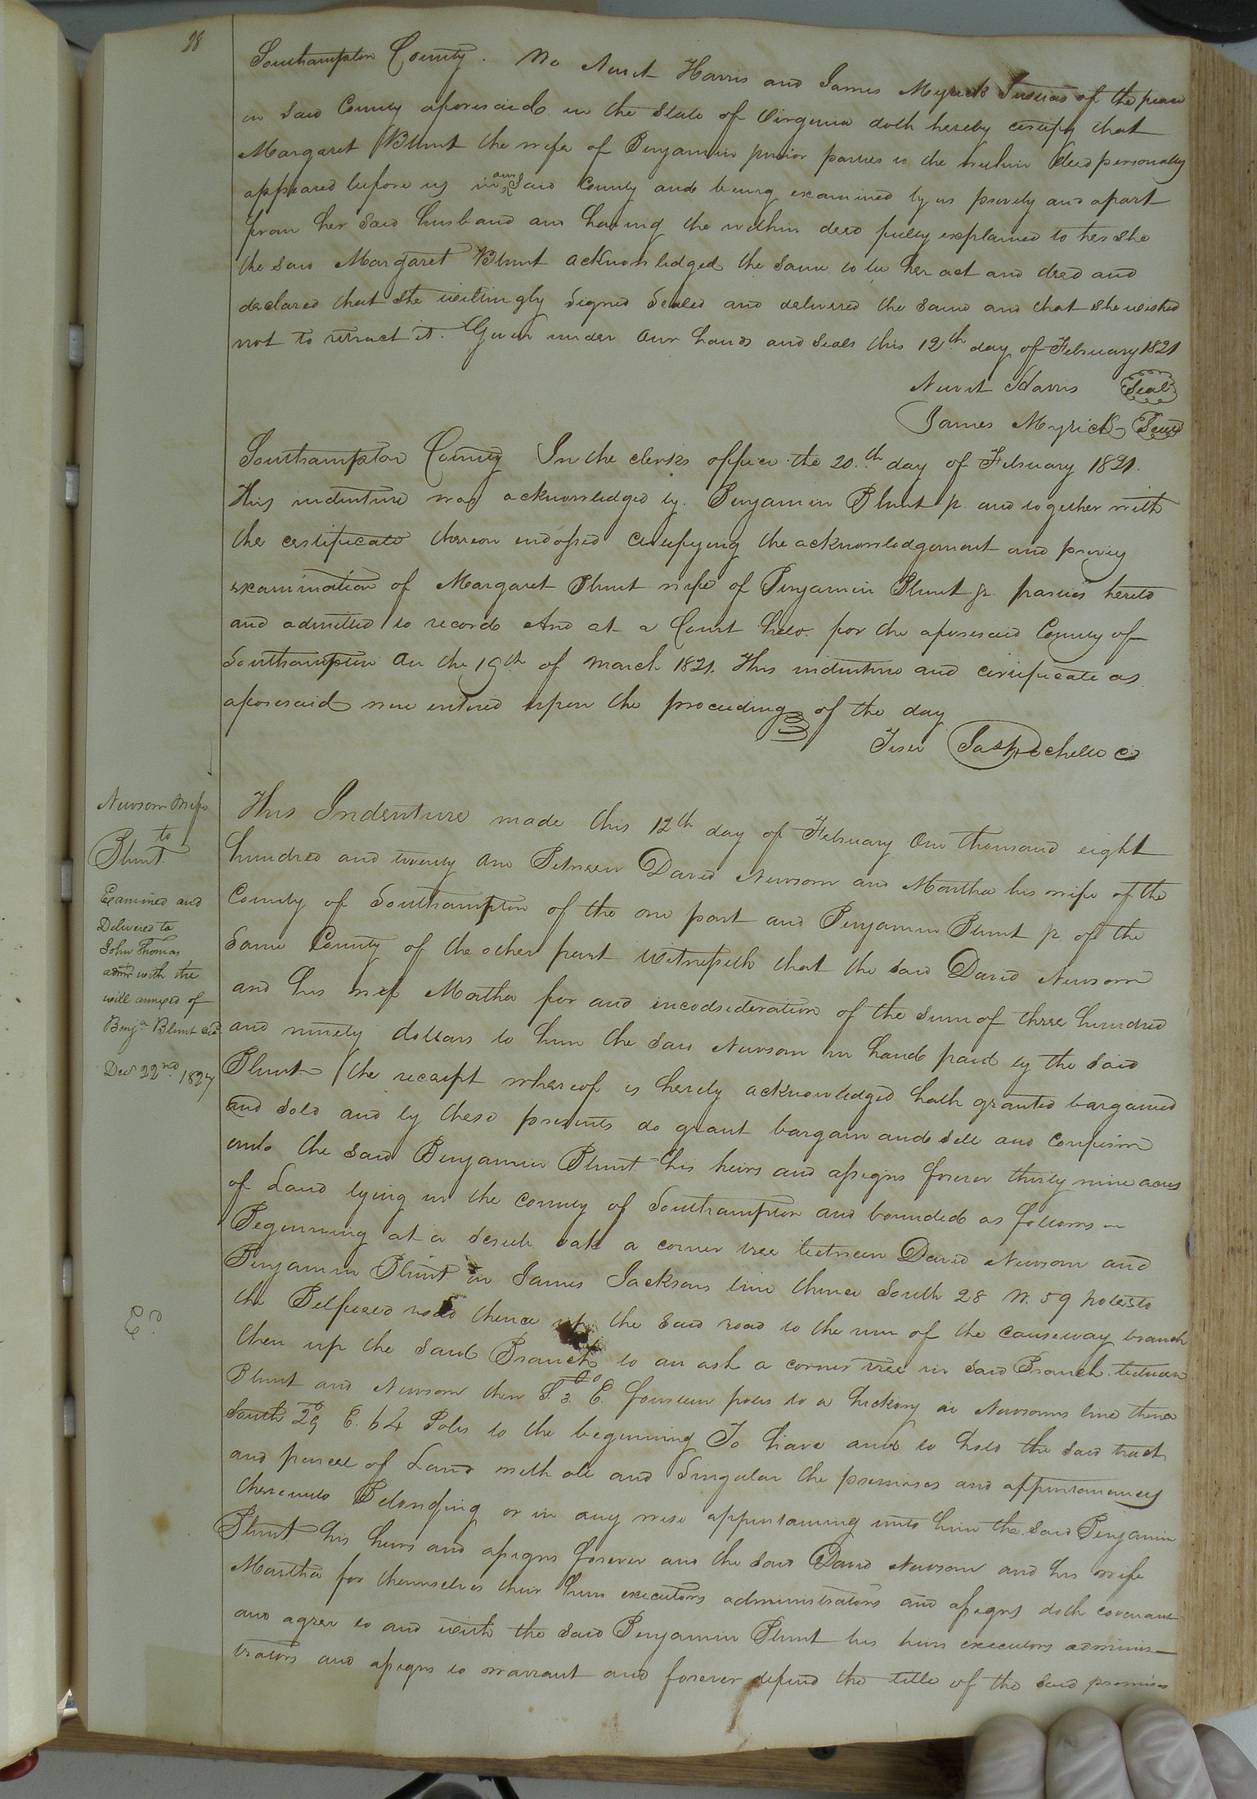 98
Southampton County. We Newit Harris and James Myrick Justices of the peace
in said County aforesaid in the State of Virginia doth hereby certify that
Margaret Blunt the wife of Benjamin junior parties to the within deed personally
appeared before us in our said County and being examined by us privily and apart
from her said husband and having the within deed fully explained to her she
the said Margaret Blunt acknowledged the same to be her act and deed and
declared that she willingly signed sealed and delivered the same and that she wished
not to retract it. Given under our hands and seals this 12th day of February 1821
Newit Harris Seal
James Myrick Seal
Southampton County In the clerks office the 20th day of February 1821.
This indenture was acknowledged by Benjamin Blunt jr. and together with
the certificate thereon indorsed certifying the acknowledgement and privy
examination of Margaret Blunt wife of Benjamin Blunt jr. parties hereto
and admitted to record And at a Court held for the aforesaid County of
Southampton on the 19th of March 1821. This indenture and certificate as
aforesaid were entered upon the proceedings of the day
Teste Jas Rochelle C
Newsom & wife
to
Blunt
Examined and
Delivered to
John Thomas
admr with the
will annexed of
Benja Blunt
Decr 22nd 1827
Ed
This Indenture made this 12th day of February One thousand eight
hundred and twenty one Between David Newsom and Martha his wife of the
County of Southampton of the one part and Benjamin Blunt jr of the
same County of the other part Witnesseth that the said David Newsom
and his wife Martha for and inconsideration of the sum of three hundred
and ninety dollars to him the said Newsom in hand paid by the said
Blunt (the receipt whereof is hereby acknowledged hath granted bargained
and sold and by these presents do grant bargain and sell and confirm
unto the said Benjamin Blunt his heirs and assigns forever thirty nine acres
of Land lying in the county of Southampton and bounded as follows
Beginning at a scrub oak a corner tree between David Newsom and
Benjamin Blunt in James Jacksons line thence South 28 W. 59 poles to
the Belfield road thence up the said road to the run of the causeway branch
then up the said Branch to an ash a corner tree in said Branch between
Blunt and Newsom then S. 3 E. fourteen poles to a hickory in Newsoms line thence
South 29 E. 64 Poles to the beginning To have and to hold the said tract
and parcel of Land with all and Singular the premises and appurtenances
thereunto Belonging or in any wise appertaining unto him the said Benjamin
Blunt his heirs and assigns forever and the said David Newsom and his wife
Martha for themselves their heirs executors administrators and assigns doth covenant
and agree to and with the said Benjamin Blunt his heirs executors adminis-
trators and assigns to warrant and forever defend the title of the said premises